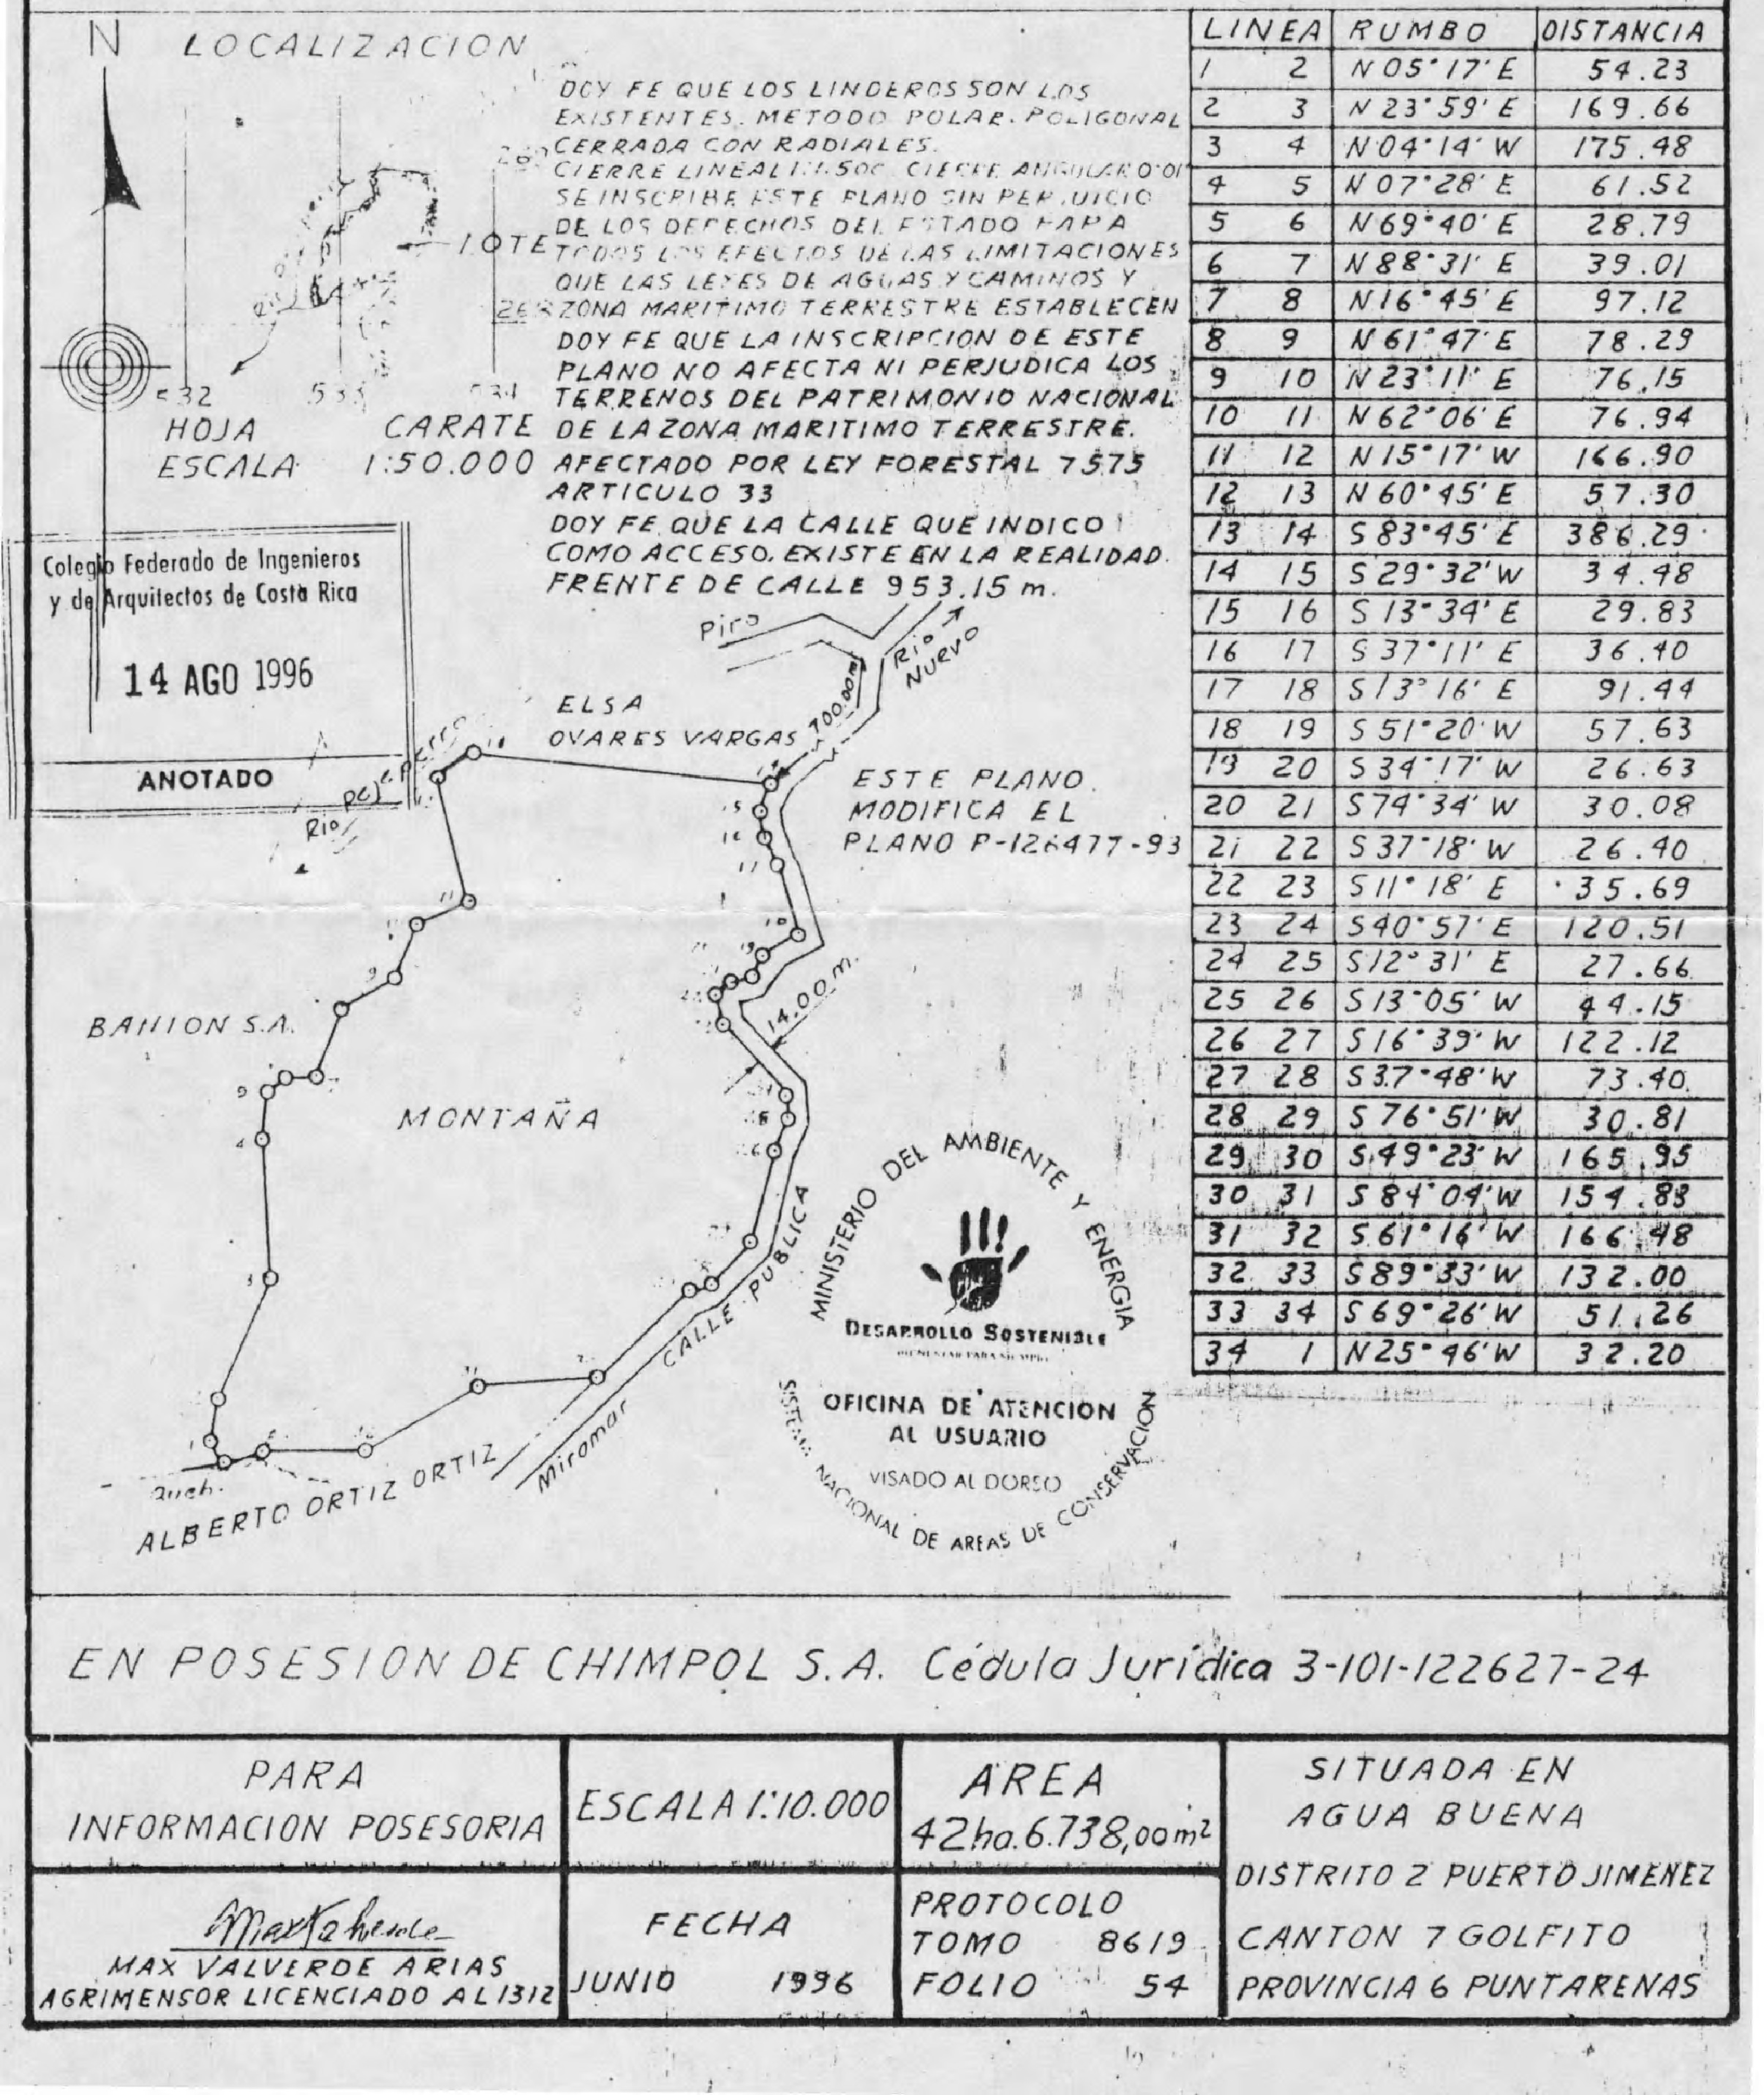 N LOCALIZACION
DOY FE QUE LOS LINDEROS SON LOS
EXISTENTES. METODO POLAR. POLIGONAL
CERRADA CON RADIALES.
CIERRE LINEAL 1:1.500 CIERRE ANGULAR 0°01
SE INSCRIBE ESTE PLANO SIN PERJUICIO
DE LOS DERECHOS DEL ESTADO PARA
TODOS LOS EFECTOS DE LAS LIMITACIONES
QUE LAS LEYES DE AGUAS Y CAMINOS Y
ZONA MARITIMO TERRESTRE ESTABLECEN
DOY FE QUE LA INSCRIPCION DE ESTE
PLANO NO AFECTA NI PERJUDICA LOS
TERRENOS DEL PATRIMONIO NACIONAL
DE LA ZONA MARITIMO TERRESTRE.
AFECTADO POR LEY FORESTAL 7575
ARTICULO 33
DOY FE QUE LA CALLE QUE INDICO
COMO ACCESO. EXISTE EN LA REALIDAD.
FRENTE DE CALLE 953.15 m.
LOTE
532 533 534
HOJA CARATE
ESCALA 1:50.000
Colegio Federado de Ingenieros
y de Arquitectos de Costa Rica
14 AGO 1996
ANOTADO
Piro
Rio
NUEVO
700.00m
ELSA
OVARES VARGAS
Rio
ESTE PLANO.
MODIFICA EL
PLANO P-126477-93
14.00m.
BAHION S.A.
MONTAÑA
CALLE PUBLICA
Miramar
ALBERTO ORTIZ ORTIZ
MINISTERIO DEL AMBIENTE Y ENERGIA
DESARROLLO SOSTENIBLE
OFICINA DE ATENCION
AL USUARIO
VISADO AL DORSO
SISTEMA NACIONAL DE AREAS DE CONSERVACION
LINEA RUMBO DISTANCIA
1 2 N05°17'E 54.23
2 3 N23°59'E 169.66
3 4 N04°14'W 175.48
4 5 N07°28'E 61.52
5 6 N69°40'E 28.79
6 7 N88°31'E 39.01
7 8 N16°45'E 97.12
8 9 N61°47'E 78.29
9 10 N23°11'E 76.15
10 11 N62°06'E 76.94
11 12 N15°17'W 166.90
12 13 N60°45'E 57.30
13 14 S83°45'E 386.29
14 15 S29°32'W 34.48
15 16 S13°34'E 29.83
16 17 S37°11'E 36.40
17 18 S13°16'E 91.44
18 19 S51°20'W 57.63
19 20 S34°17'W 26.63
20 21 S74°34'W 30.08
21 22 S37°18'W 26.40
22 23 S11°18'E 35.69
23 24 S40°57'E 120.51
24 25 S12°31'E 27.66
25 26 S13°05'W 44.15
26 27 S16°39'W 122.12
27 28 S37°48'W 73.40
28 29 S76°51'W 30.81
29 30 S49°23'W 165.95
30 31 S84°04'W 154.83
31 32 S61°16'W 166.48
32 33 S89°33'W 132.00
33 34 S69°26'W 51.26
34 1 N25°46'W 32.20
EN POSESION DE CHIMPOL S.A. Cédula Jurídica 3-101-122627-24
PARA
INFORMACION POSESORIA
ESCALA 1:10.000
AREA
42ha.6.738,00m²
SITUADA EN
AGUA BUENA
DISTRITO 2 PUERTO JIMENEZ
CANTON 7 GOLFITO
PROVINCIA 6 PUNTARENAS
MAX VALVERDE ARIAS
AGRIMENSOR LICENCIADO AL1312
FECHA
JUNIO 1996
PROTOCOLO
TOMO 8619
FOLIO 54